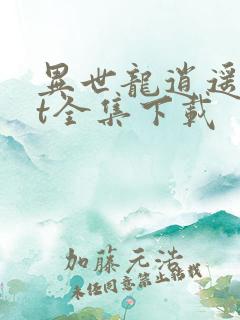 異世龍逍遥
t全集下載
加藤元浩
未经同意禁止转载